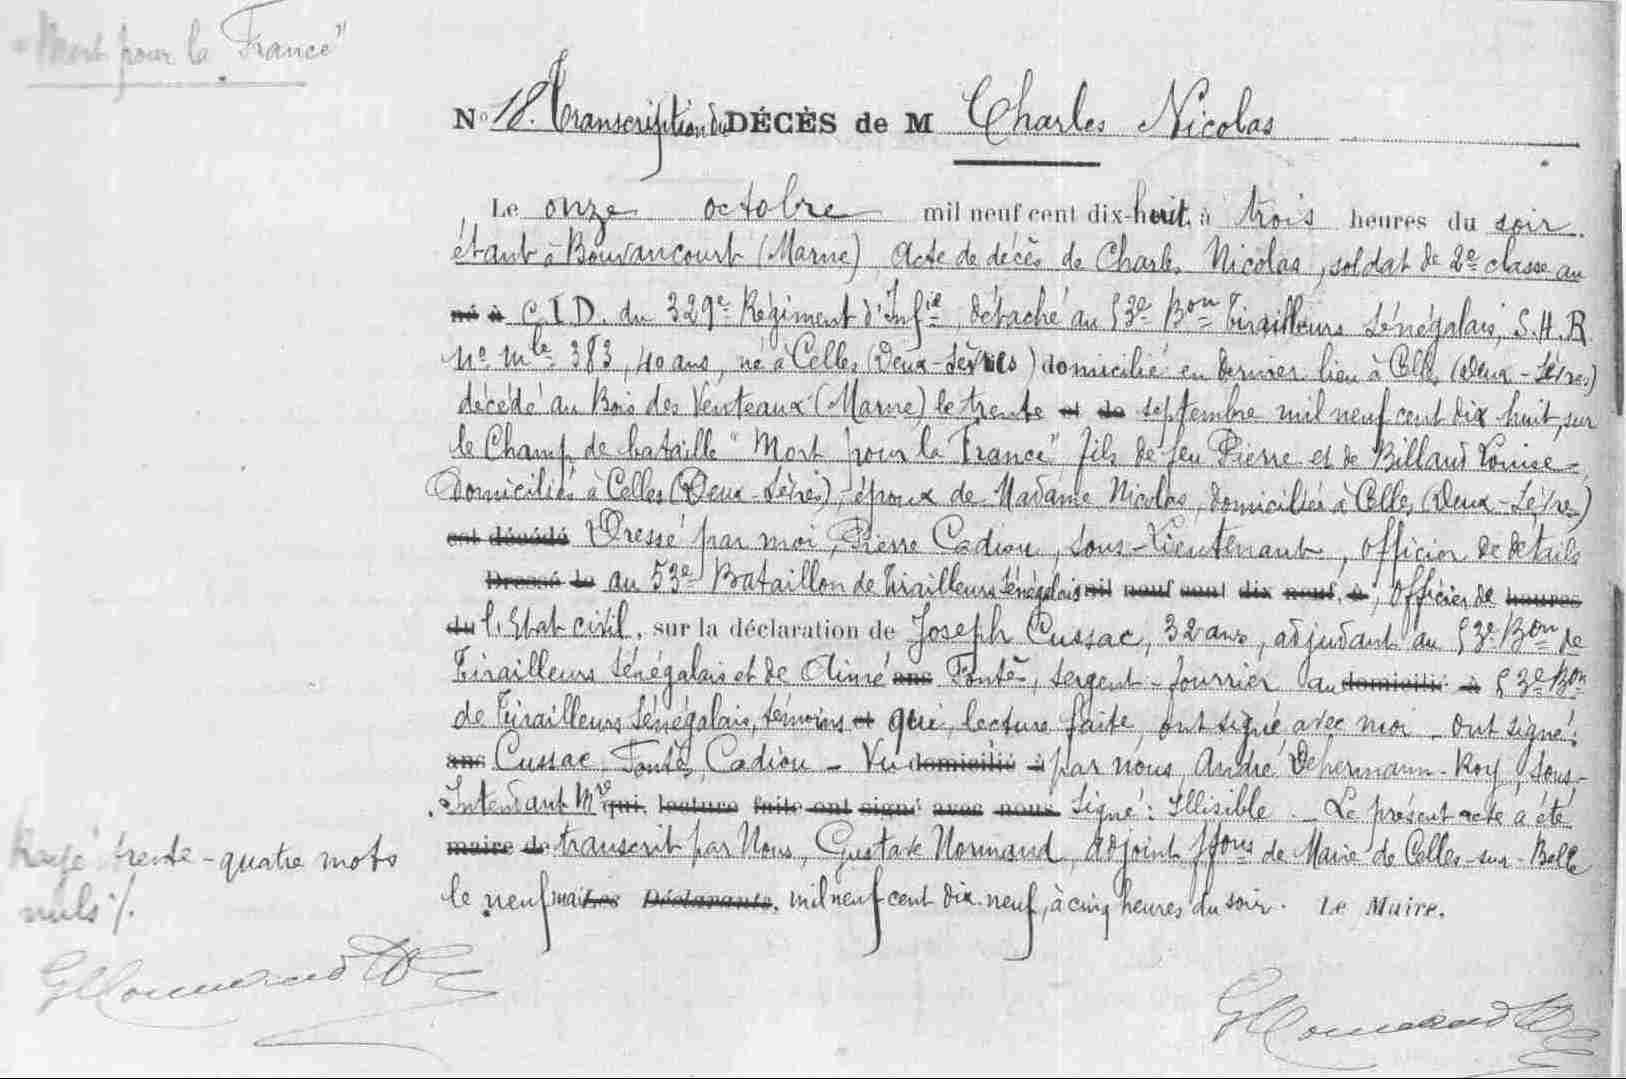 "Mort pour la France"
No 18. Transcription du DÉCÈS de M Charles Nicolas
Le onze octobre mil neuf cent dix-huit, à trois heures du soir.
étant à Bouvancourt (Marne) Acte de décès de Charles Nicolas, soldat de 2e classe au
né à C.I.D. du 329e Régiment d'Infie, détaché au 53e Bon Tirailleurs Sénégalais, S.H.R.
No mle 383, 40 ans, né à Celles (Deux-Sèvres) domicilié en dernier lieu à Celles (Deux-Sèvres)
décédé au Bois des Venteaux (Marne) le trente et de septembre mil neuf cent dix huit, sur
le Champ de bataille "Mort pour la France" fils de feu Pierre et de Billaud Louise
Domiciliés à Celles (Deux-Sèvres), époux de Madame Nicolas, domiciliée à Celles (Deux-Sèvres)
est décédé Dressé par moi, Pierre Cadiou, sous-Lieutenant, officier de détails
Dressé le au 53e Bataillon de Tirailleurs Sénégalais mil neuf cent dix neuf, à, Officier de heures
du l'Etat civil, sur la déclaration de Joseph Cussac, 32 ans, adjudant au 53e Bon de
Tirailleurs Sénégalais et de Aimé ans Fonté, sergent-fourrier au domicilié à 53e Bon
de Tirailleurs Sénégalais, témoins et qui, lecture faite, ont signé avec moi _ ont signé:
ans Cussac, Fonté, Cadiou - Vu domicilié à par nous, André Dehermann-Roy, Sous-
Intendant Mre qui, lecture faite ont signé avec nous Signé: Illisible. _ Le présent acte a été
maire de transcrit par Nous, Gustave Normand, adjoint ffons de Maire de Celles-sur-Belle
le neuf mai Les Déclarants, mil neuf cent dix-neuf, à cinq heures du soir. Le Maire.
Rayé trente-quatre mots
nuls /.
GNormand
GNormand